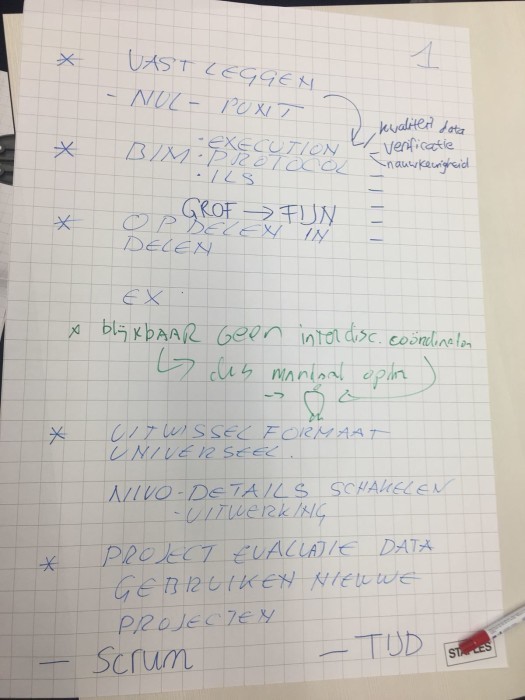 1
* VASTLEGGEN
- NUL-PUNT
kwaliteit data
- verificatie
nauwkeurigheid
* BIM
· EXECUTION
· PROTOCOL
· ILS
GROF → FIJN
* OPDELEN IN
DELEN
EX.
* blijkbaar geen interdisc. coördinator
↳ dus
→
* UITWISSELFORMAAT
UNIVERSEEL.
NIVO-DETAILS SCHAKELEN
-UITWERKING
* PROJECT EVALUATIE DATA
GEBRUIKEN NIEUWE
PROJECTEN
— Scrum
— TIJD
STAPLES